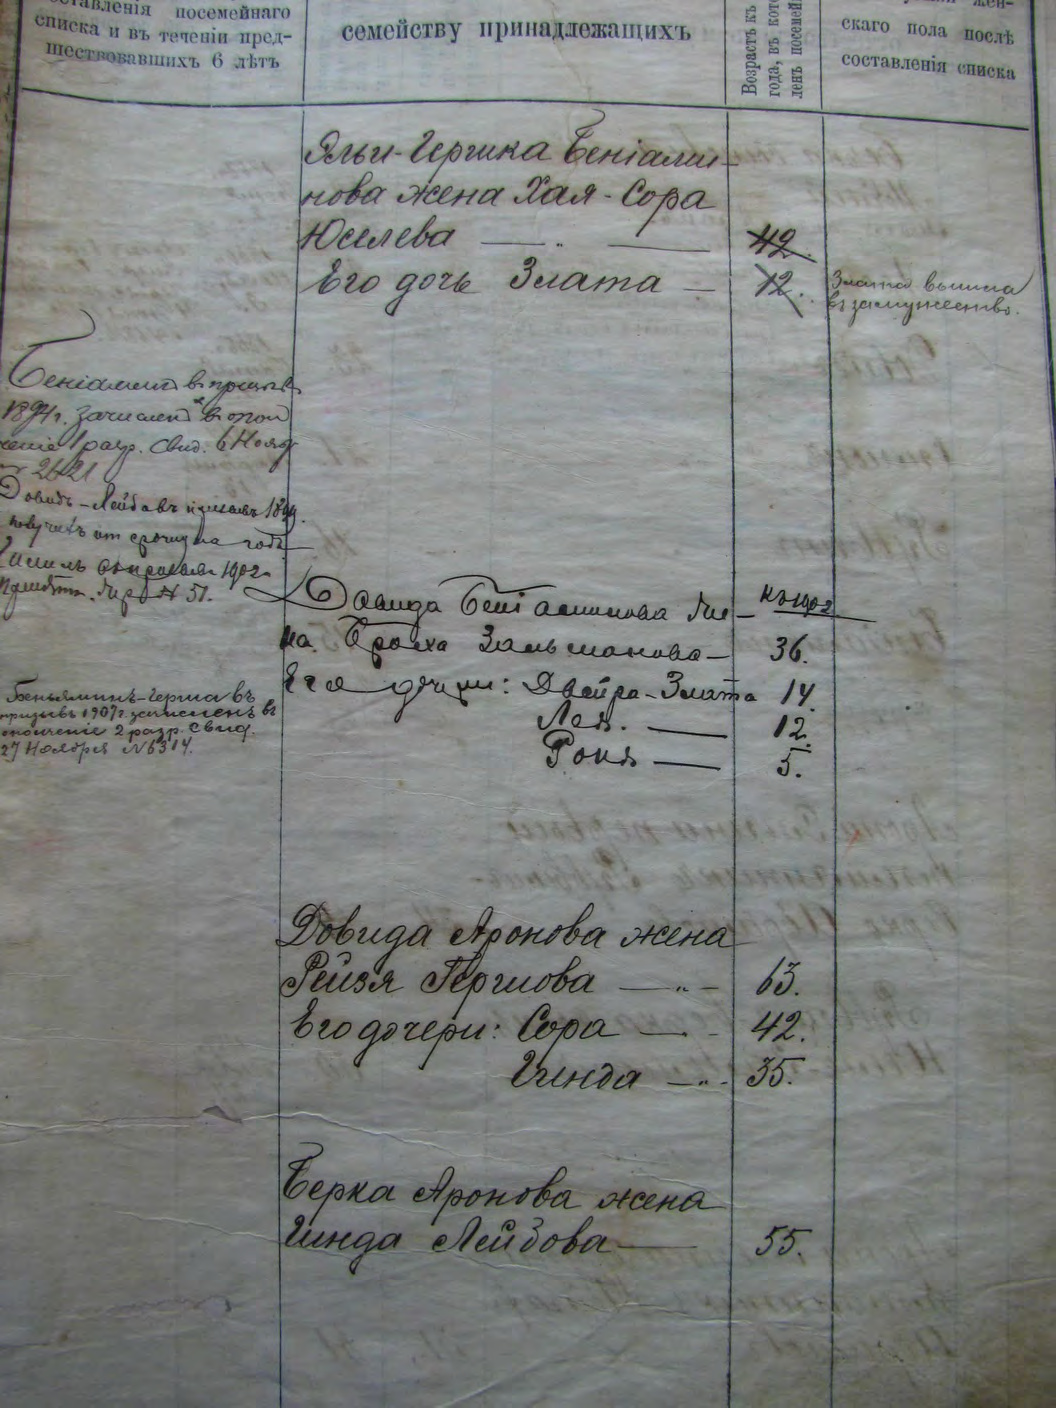 составленія посемейнаго
списка и въ теченіи пред-
шествовавшихъ 6 лѣтъ
семейству принадлежащихъ
Возрастъ къ
года, въ
ленъ посемей
жен-
скаго пола послѣ
составленія списка
Яльи-Гершка Беніами-
нова жена Хая-Сора
Юселева — " — 42.
Его дочь Злата — 12.
Злата вышла
въ замужество.
Беніаминъ въ призывѣ
1894г. зачисленъ в опол
ченіе 1 разр. Свид. 6 Нояб
2421
Довидъ-Лейба въ призывъ 1899
получилъ отсрочку на годъ
1902г
№ 51.
Довида Беніаминова же-
на Броха Зальманова — 36.
Его дочери: Двейра-Злата 14.
Лея. — 12.
Роня — 5.
Беньяминъ-Герша въ
призывъ 1907г. зачисленъ въ
ополченіе 2 разр. Свид.
27 Ноября №6314.
Довида Аронова жена
Рейзя Гершова — " — 63.
Его дочери: Сора — 42.
Гинда — " — 35.
Берка Аронова жена
Гинда Лейбова — 55.